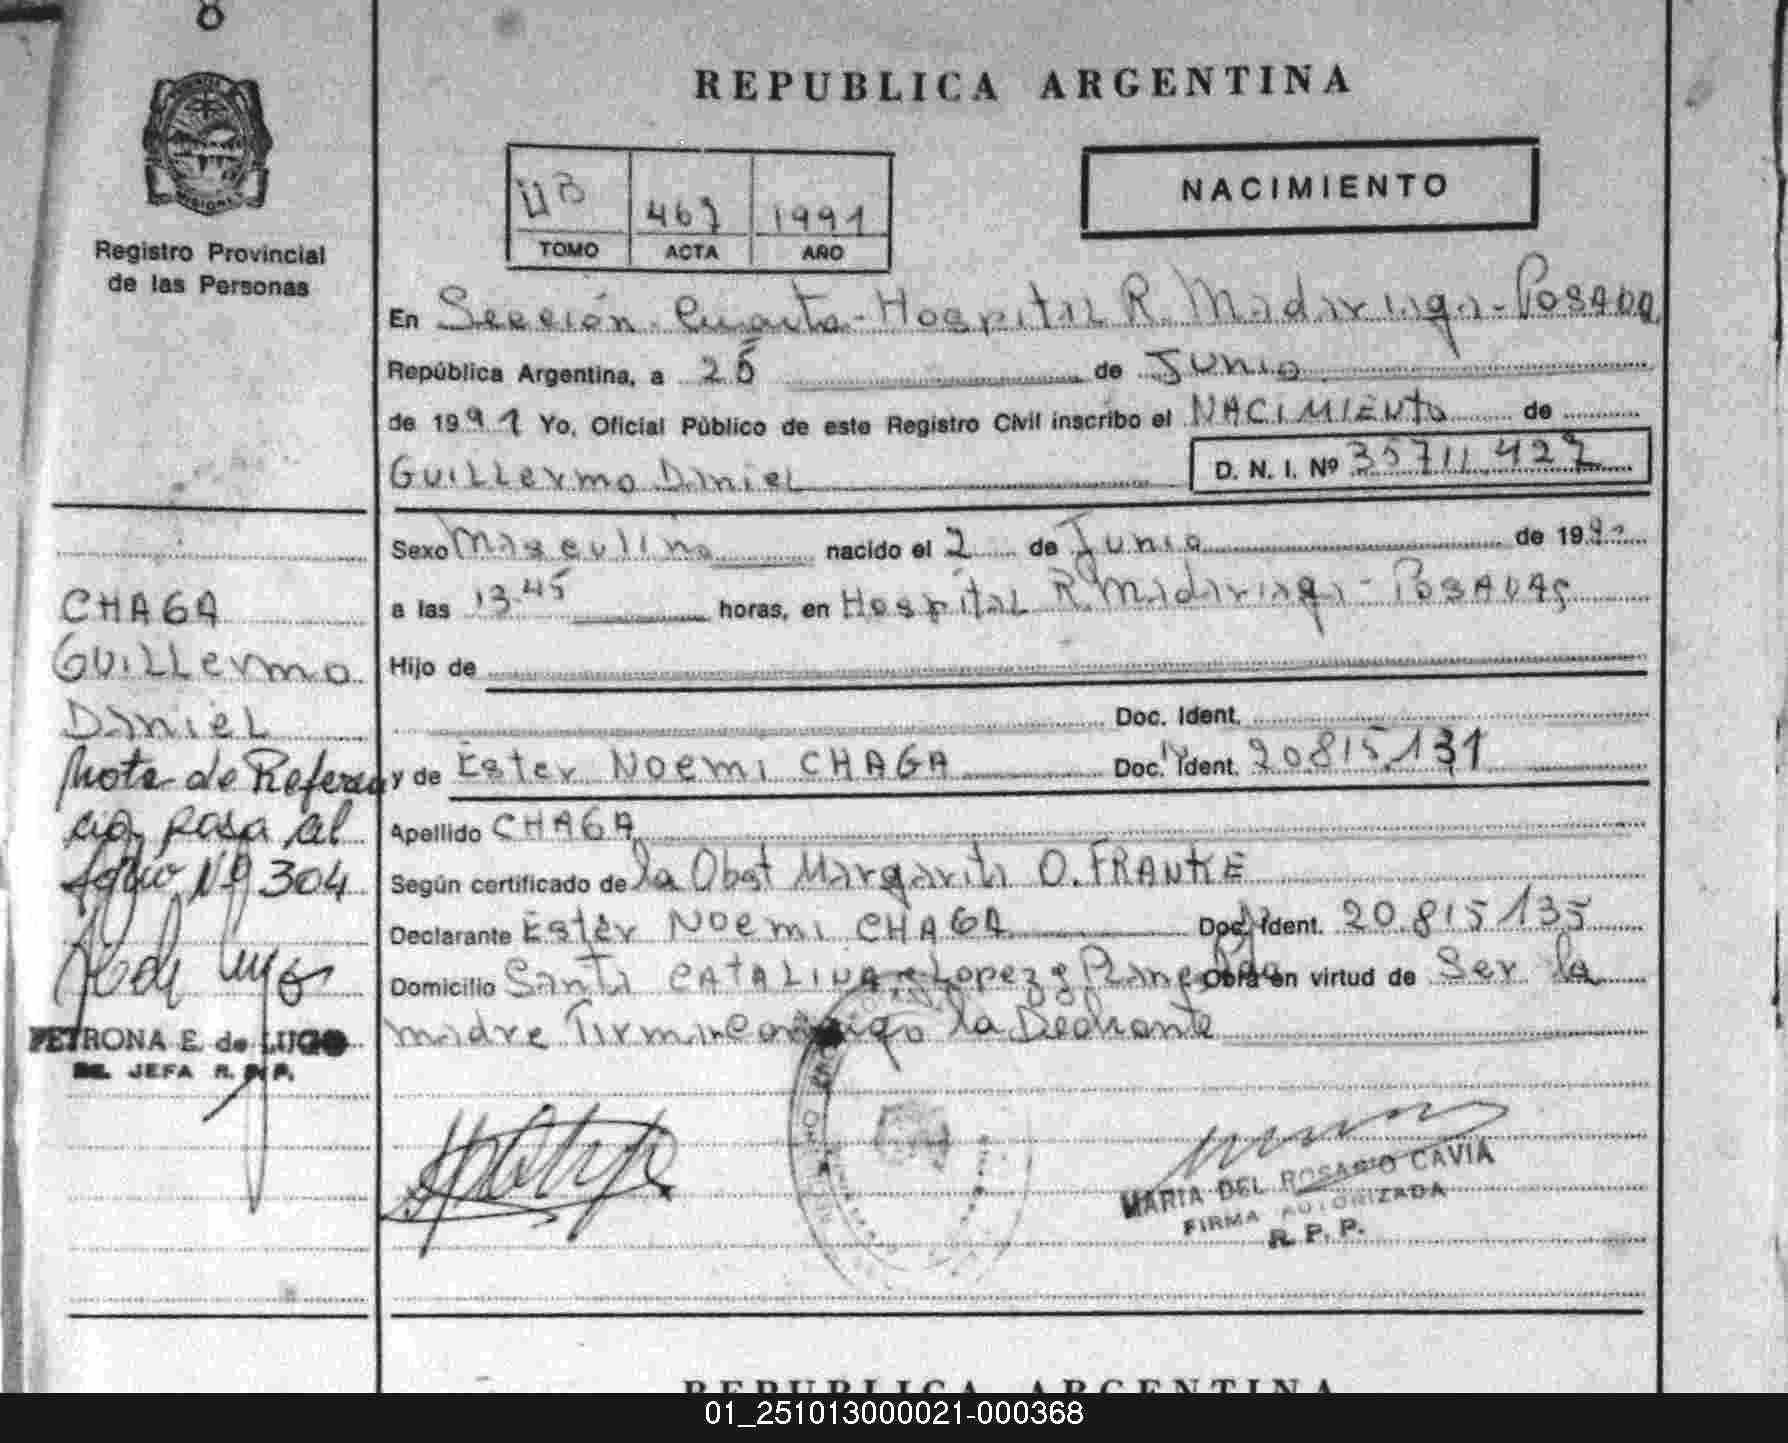 8
REPUBLICA ARGENTINA
NACIMIENTO
467 1991
TOMO ACTA AÑO
Registro Provincial
de las Personas
En Sección Cuarta - Hospital R. Madariaga - POSADA
República Argentina, a 25 de Junio
de 1991 Yo, Oficial Público de este Registro Civil inscribo el NACIMIENTO de
Guillermo Daniel D. N. I. Nº 35711427
Sexo Masculino nacido el 2 de Junio de 199
a las 13.45 horas, en Hospital R. Madariaga - POSADAS
Hijo de
Doc. Ident.
y de Ester Noemi CHAGA Doc. Ident. 20.815.131
Apellido CHAGA
Según certificado de la Obst Margarita O. FRANKE
Declarante Ester Noemi CHAGA Doc. Ident. 20.815.135
Domicilio Santa CATALINA y Lopez y Planes Obra en virtud de Ser la
madre Firman conmigo la
CHAGA
Guillermo
Daniel
Nota de Referen
cia, pasa al
folio Nº 304
PETRONA E. de LUGO
JEFA R. P. P.
MARIA DEL ROSARIO CAVIA
FIRMA AUTORIZADA
R. P. P.
REPUBLICA ARGENTINA
01_251013000021-000368